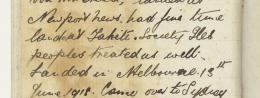 Newport News. had fine time
landed Tahiti. Society Isles
peoples treated us well.
Landed in Melbourne. 13th
June 1918. Came over to Sydney